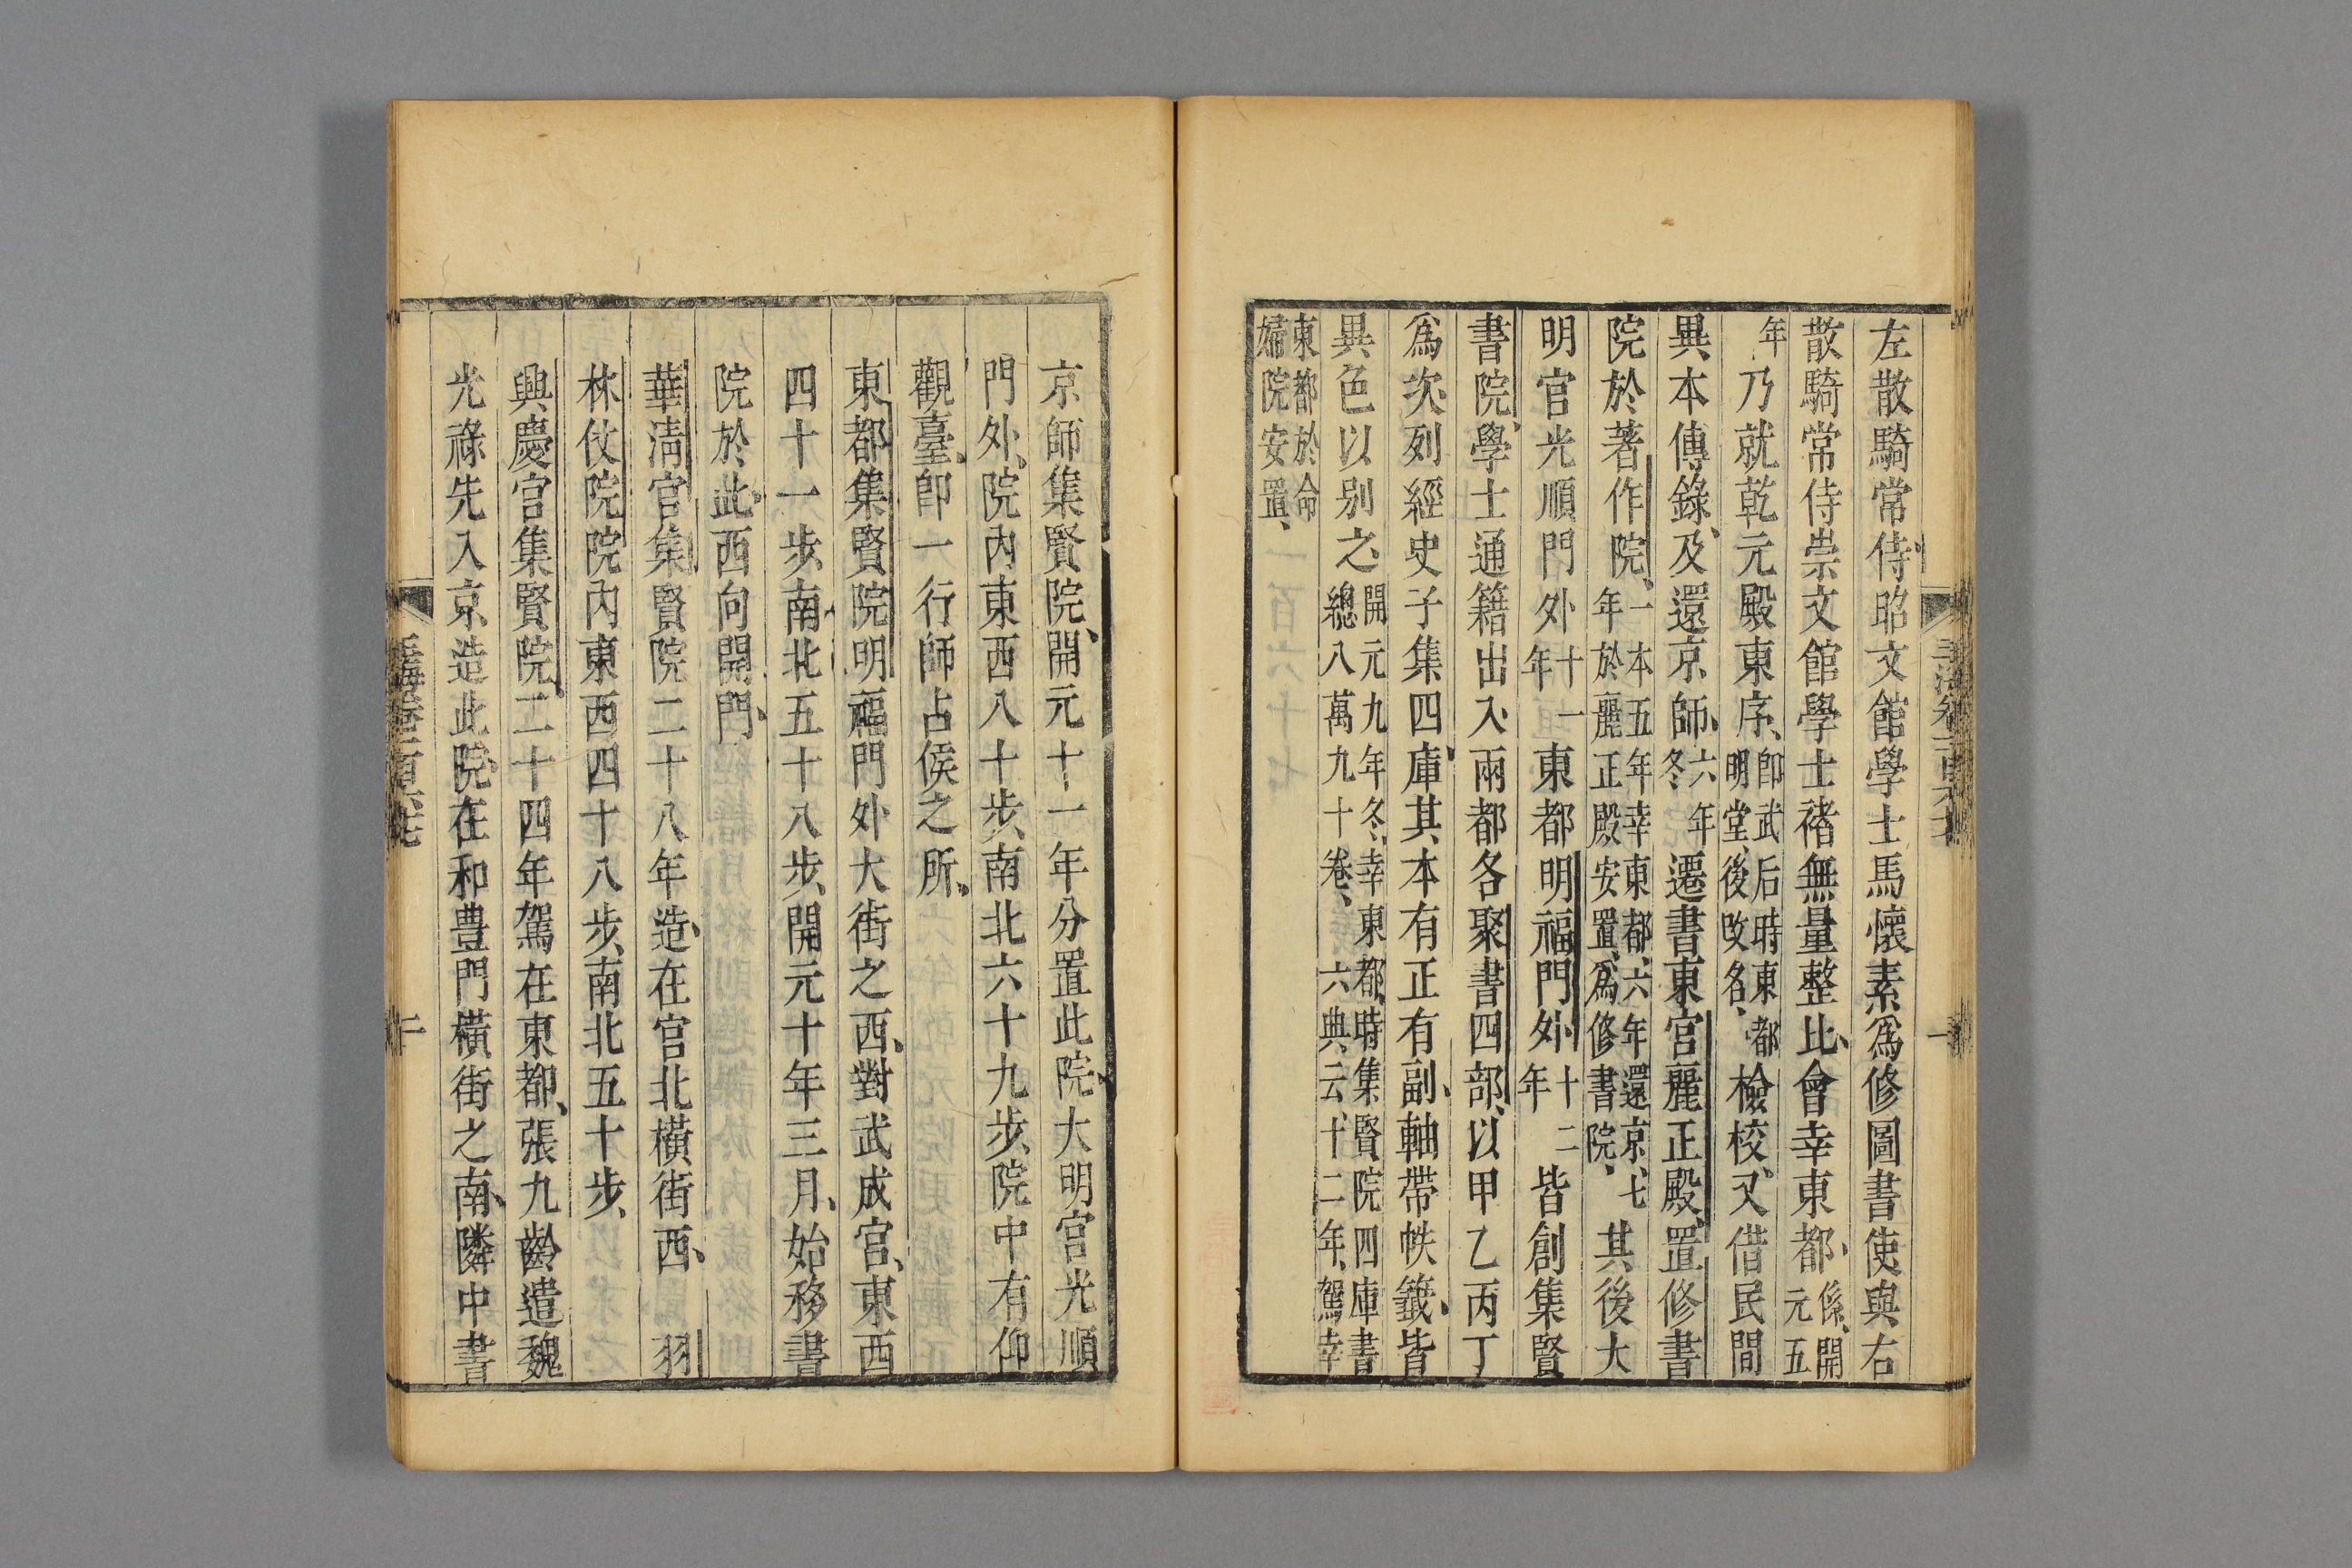 左散騎常侍昭文館學士馬懷素爲修圖書使與右
散騎常侍崇文館學士褚無量整比會幸東都係開元五
年乃就乾元殿東序卽武后時東都明堂後改名檢校又借民間
異本傳錄及還京師六年冬遷書東宮麗正殿置修書
院於著作院一本五年幸東都六年還京七年於麗正殿安置爲修書院其後大
明宮光順門外十一年東都明福門外十二年皆創集賢
書院學士通籍出入兩都各聚書四部以甲乙丙丁
爲次列經史子集四庫其本有正有副軸帶帙籤皆
異色以別之開元九年冬幸東都時集賢院四庫書總八萬九十卷六典云十二年駕幸
東都於命婦院安置
京師集賢院開元十一年分置此院大明宮光順
門外院內東西八十步南北六十九步院中有仰
觀臺卽一行師占候之所
東都集賢院明福門外大街之西對武成宮東西
四十一步南北五十八步開元十年三月始移書
院於此西向開門
華清宮集賢院二十八年造在宮北橫街西 羽
林仗院院內東西四十八步南北五十步
興慶宮集賢院二十四年駕在東都張九齡遣魏
光祿先入京造此院在和豊門橫街之南隣中書
二